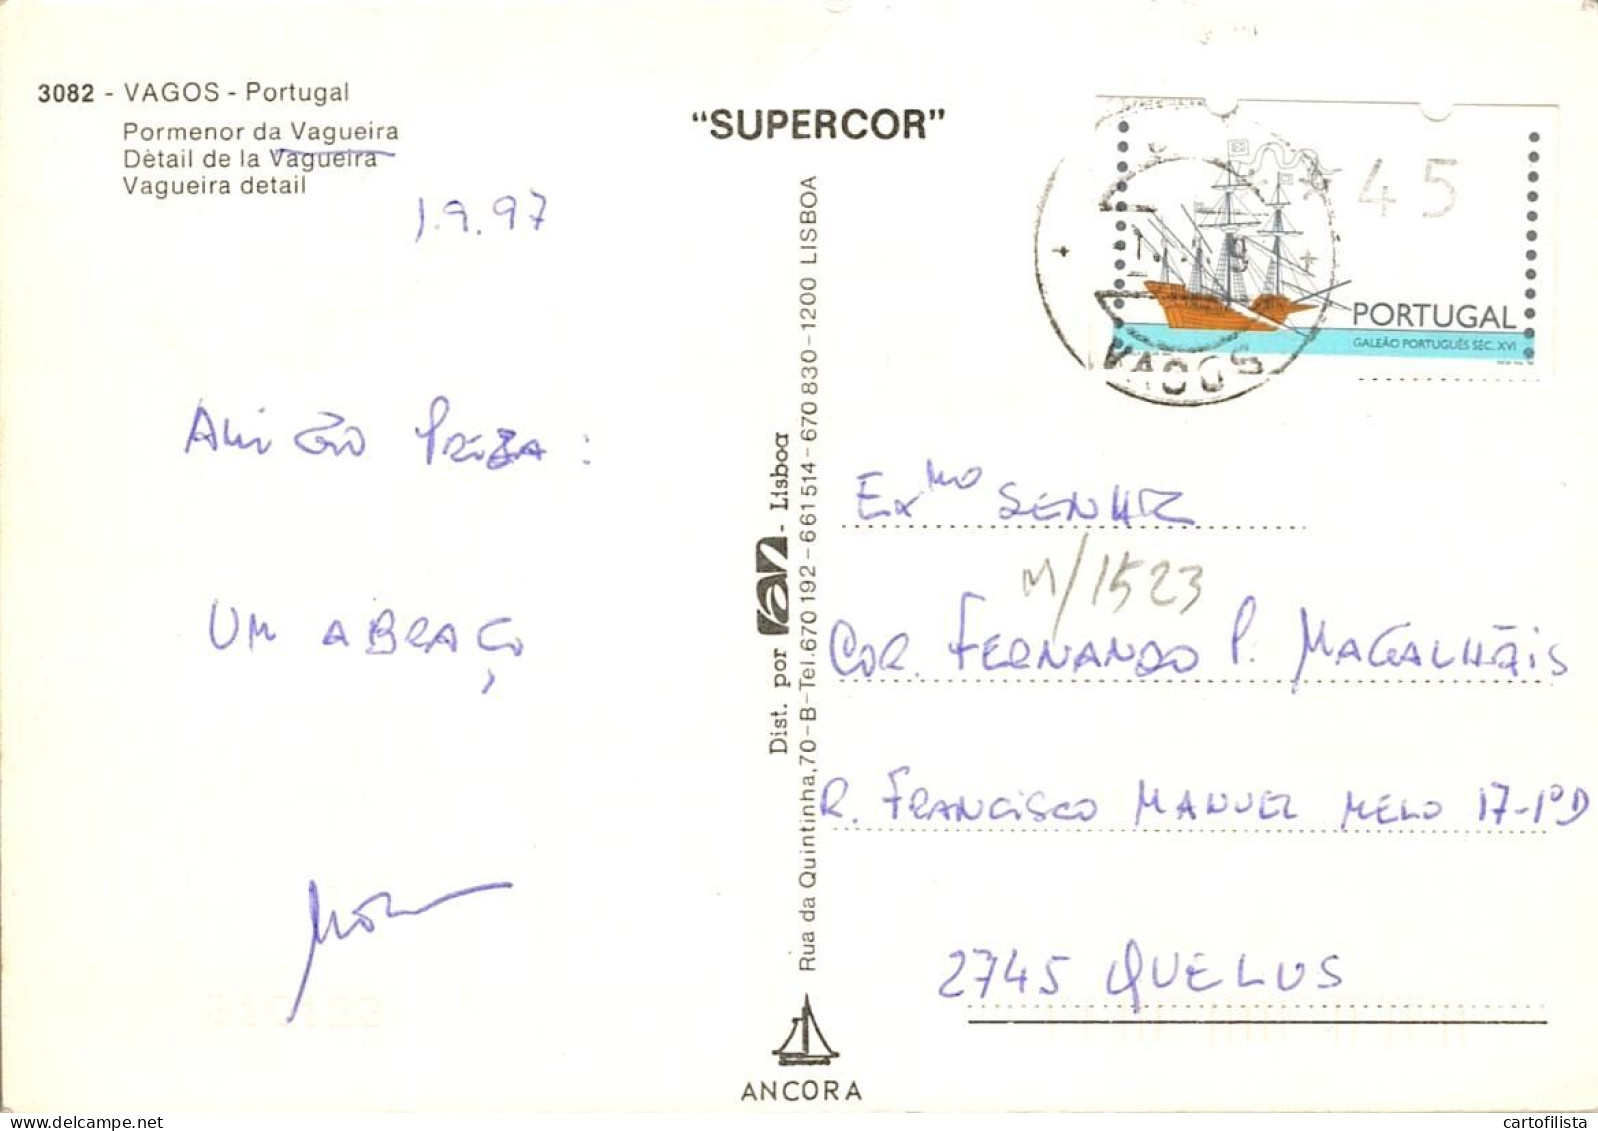 3082 - VAGOS - Portugal
Pormenor da Vagueira
Dètail de la Vagueira
Vagueira detail
1.9.97
UM ABRAÇO
"SUPERCOR"
Dist. por an - Lisboa
Rua da Quintinha,70-B-Tel.670192-661514-670830-1200 LISBOA
ANCORA
45
PORTUGAL
GALEÃO PORTUGUÊS SÉC. XVI
VAGOS
Exmo SENHOR
M/1523
COR. FERNANDO P. MAGALHÃIS
R. FRANCISCO MANUEL MELO 17-1ºD
2745 QUELUS
cartofilista